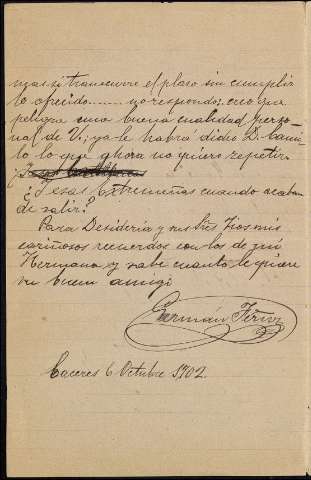 mas si transcurre el plazo sin cumplir
lo ofrecido........ no respondo; creo que
peligra una buena cualidad perso-
nal de V; ya le habrá dicho D. Cami-
lo lo que ahora no quiero repetir.
¿Y esas Extremeñas cuando acaban
de salir?
Para Desideria y sus tres Tios mis
cariñosos recuerdos con los de mi
Hermano y sabe cuanto le quiere
su buen amigo
Germán
Caceres 6 Octubre 1902.